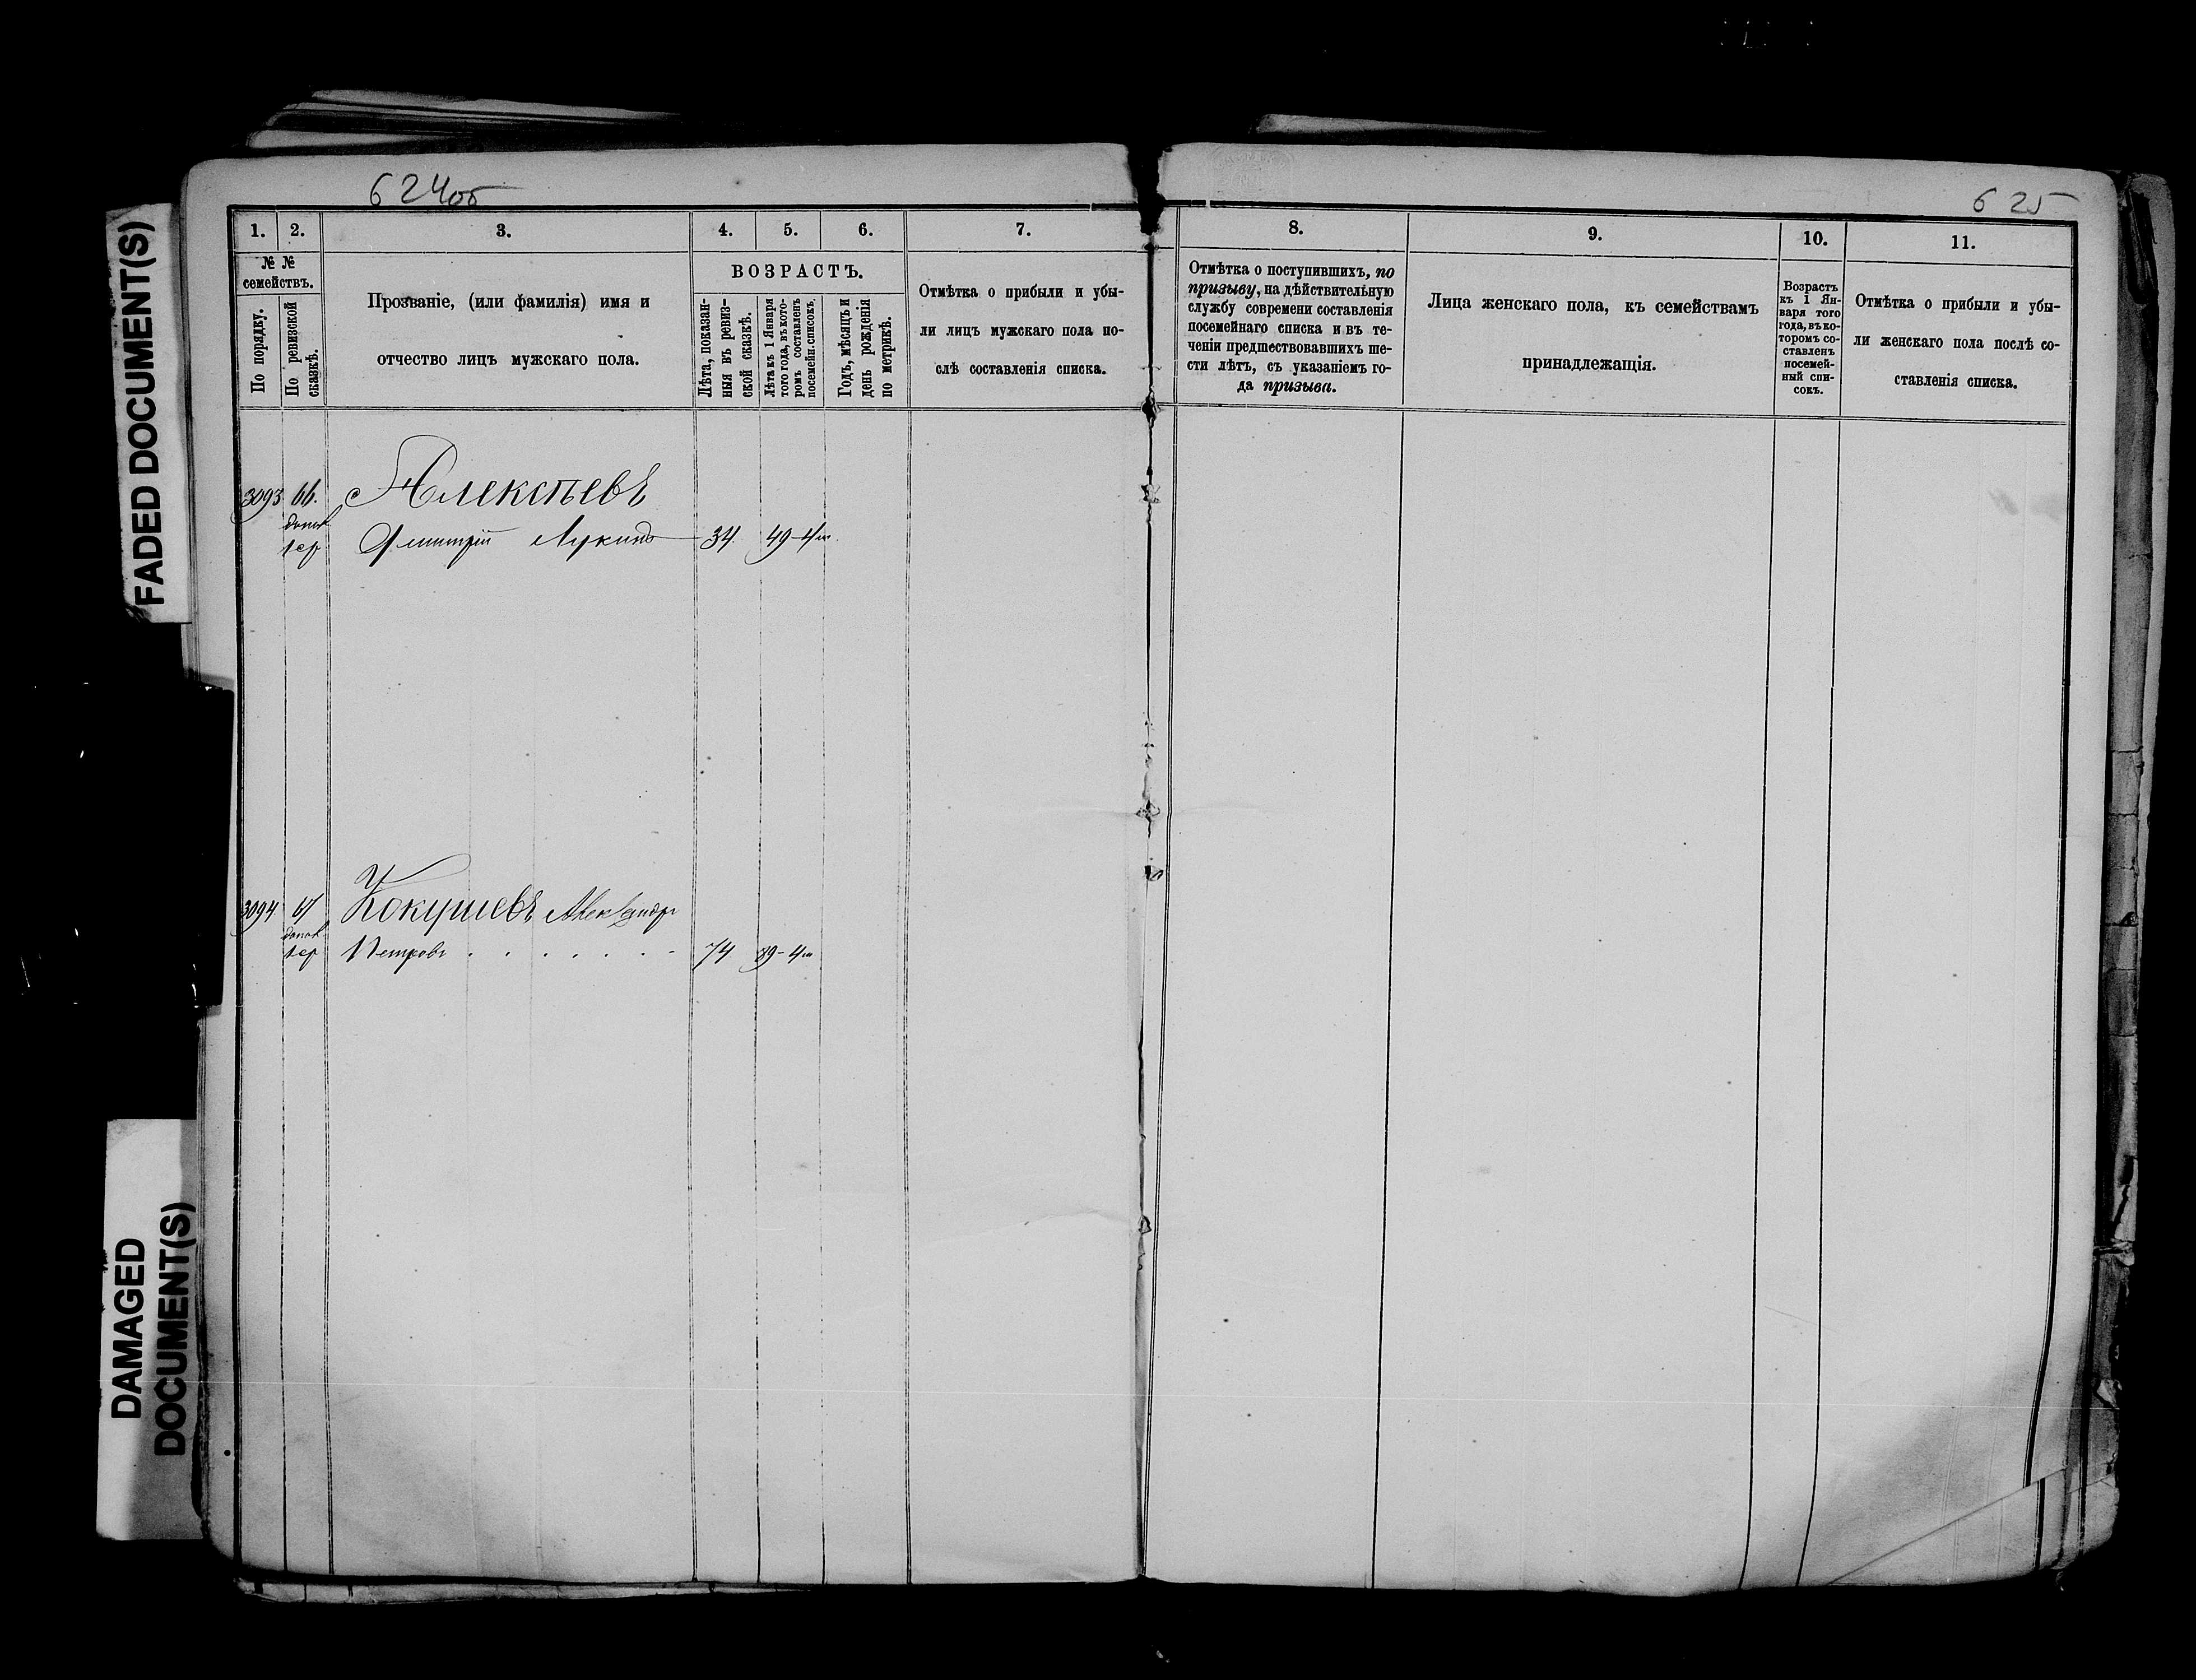 624об
625
FADED DOCUMENT(S)
DAMAGED
DOCUMENT(S)
1.
2.
3.
4.
5.
6.
7.
8.
9.
10.
11.
№ №
семействъ.
По порядку.
По ревизской
сказкѣ.
Прозваніе, (или фамилія) имя и
отчество лицъ мужскаго пола.
ВОЗРАСТЪ.
Лѣта, показан-
ныя въ ревиз-
ской сказкѣ.
Лѣта къ 1 Января
того года, въ кото-
ромъ составленъ
посемейн. списокъ.
Годъ, мѣсяцъ и
день рожденія
по метрикѣ.
Отмѣтка о прибыли и убы-
ли лицъ мужскаго пола по-
слѣ составленія списка.
Отмѣтка о поступившихъ, по
призыву, на дѣйствительную
службу современи составленія
посемейнаго списка и въ те-
ченіи предшествовавшихъ ше-
сти лѣтъ, съ указаніемъ го-
да призыва.
Лица женскаго пола, къ семействамъ
принадлежащія.
Возрастъ
къ 1 Ян-
варя того
года, въ ко-
торомъ со-
ставленъ
посемей-
ный спи-
сокъ.
Отмѣтка о прибыли и убы-
ли женскаго пола послѣ со-
ставленія списка.
3093 66. Алексѣевъ
Дмитрій Лукинъ 34 49-4м.
3094 67 Кокушевъ Александръ
Петровъ 74 89-4м